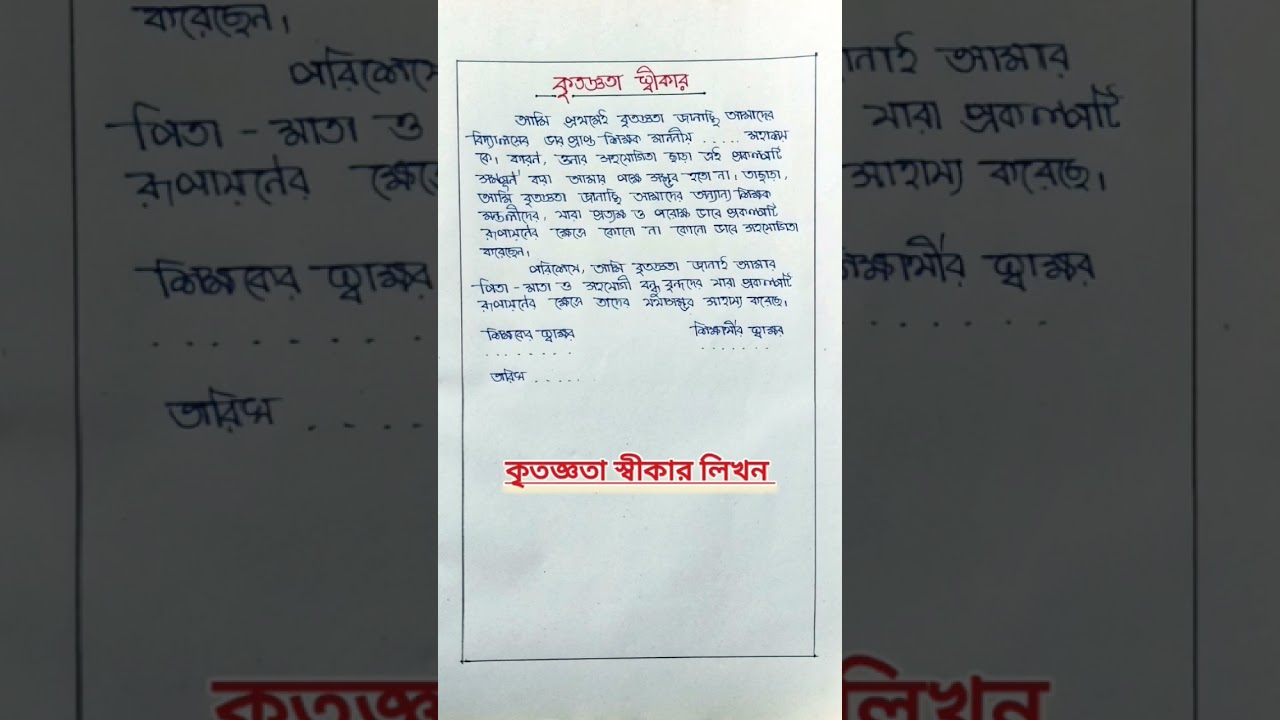 কৃতজ্ঞতা স্বীকার
আমি প্রথমেই কৃতজ্ঞতা জানাচ্ছি আমাদের
বিদ্যালয়ের ভার প্রাপ্ত শিক্ষক মাননীয় ..... মহাশয়
কে। কারন, ওনার সহযোগিতা ছাড়া এই প্রকল্পটি
সম্পূর্ন করা আমার পক্ষে সম্ভব হতো না। তাছাড়া,
আমি কৃতজ্ঞতা জানাচ্ছি আমাদের অন্যান্য শিক্ষক
মন্ডলীদের, যারা প্রত্যক্ষ ও পরোক্ষ ভাবে প্রকল্পটি
রূপায়নের ক্ষেত্রে কোনো না কোনো ভাবে সহযোগিতা
করেছেন।
পরিশেষে, আমি কৃতজ্ঞতা জানাই আমার
পিতা - মাতা ও সহযোগী বন্ধু বৃন্দদের যারা প্রকল্পটি
রূপায়নের ক্ষেত্রে তাদের যথাসম্ভব সাহায্য করেছে।
শিক্ষকের স্বাক্ষর শিক্ষার্থীর স্বাক্ষর
....... ......
তারিখ ......
কৃতজ্ঞতা স্বীকার লিখন